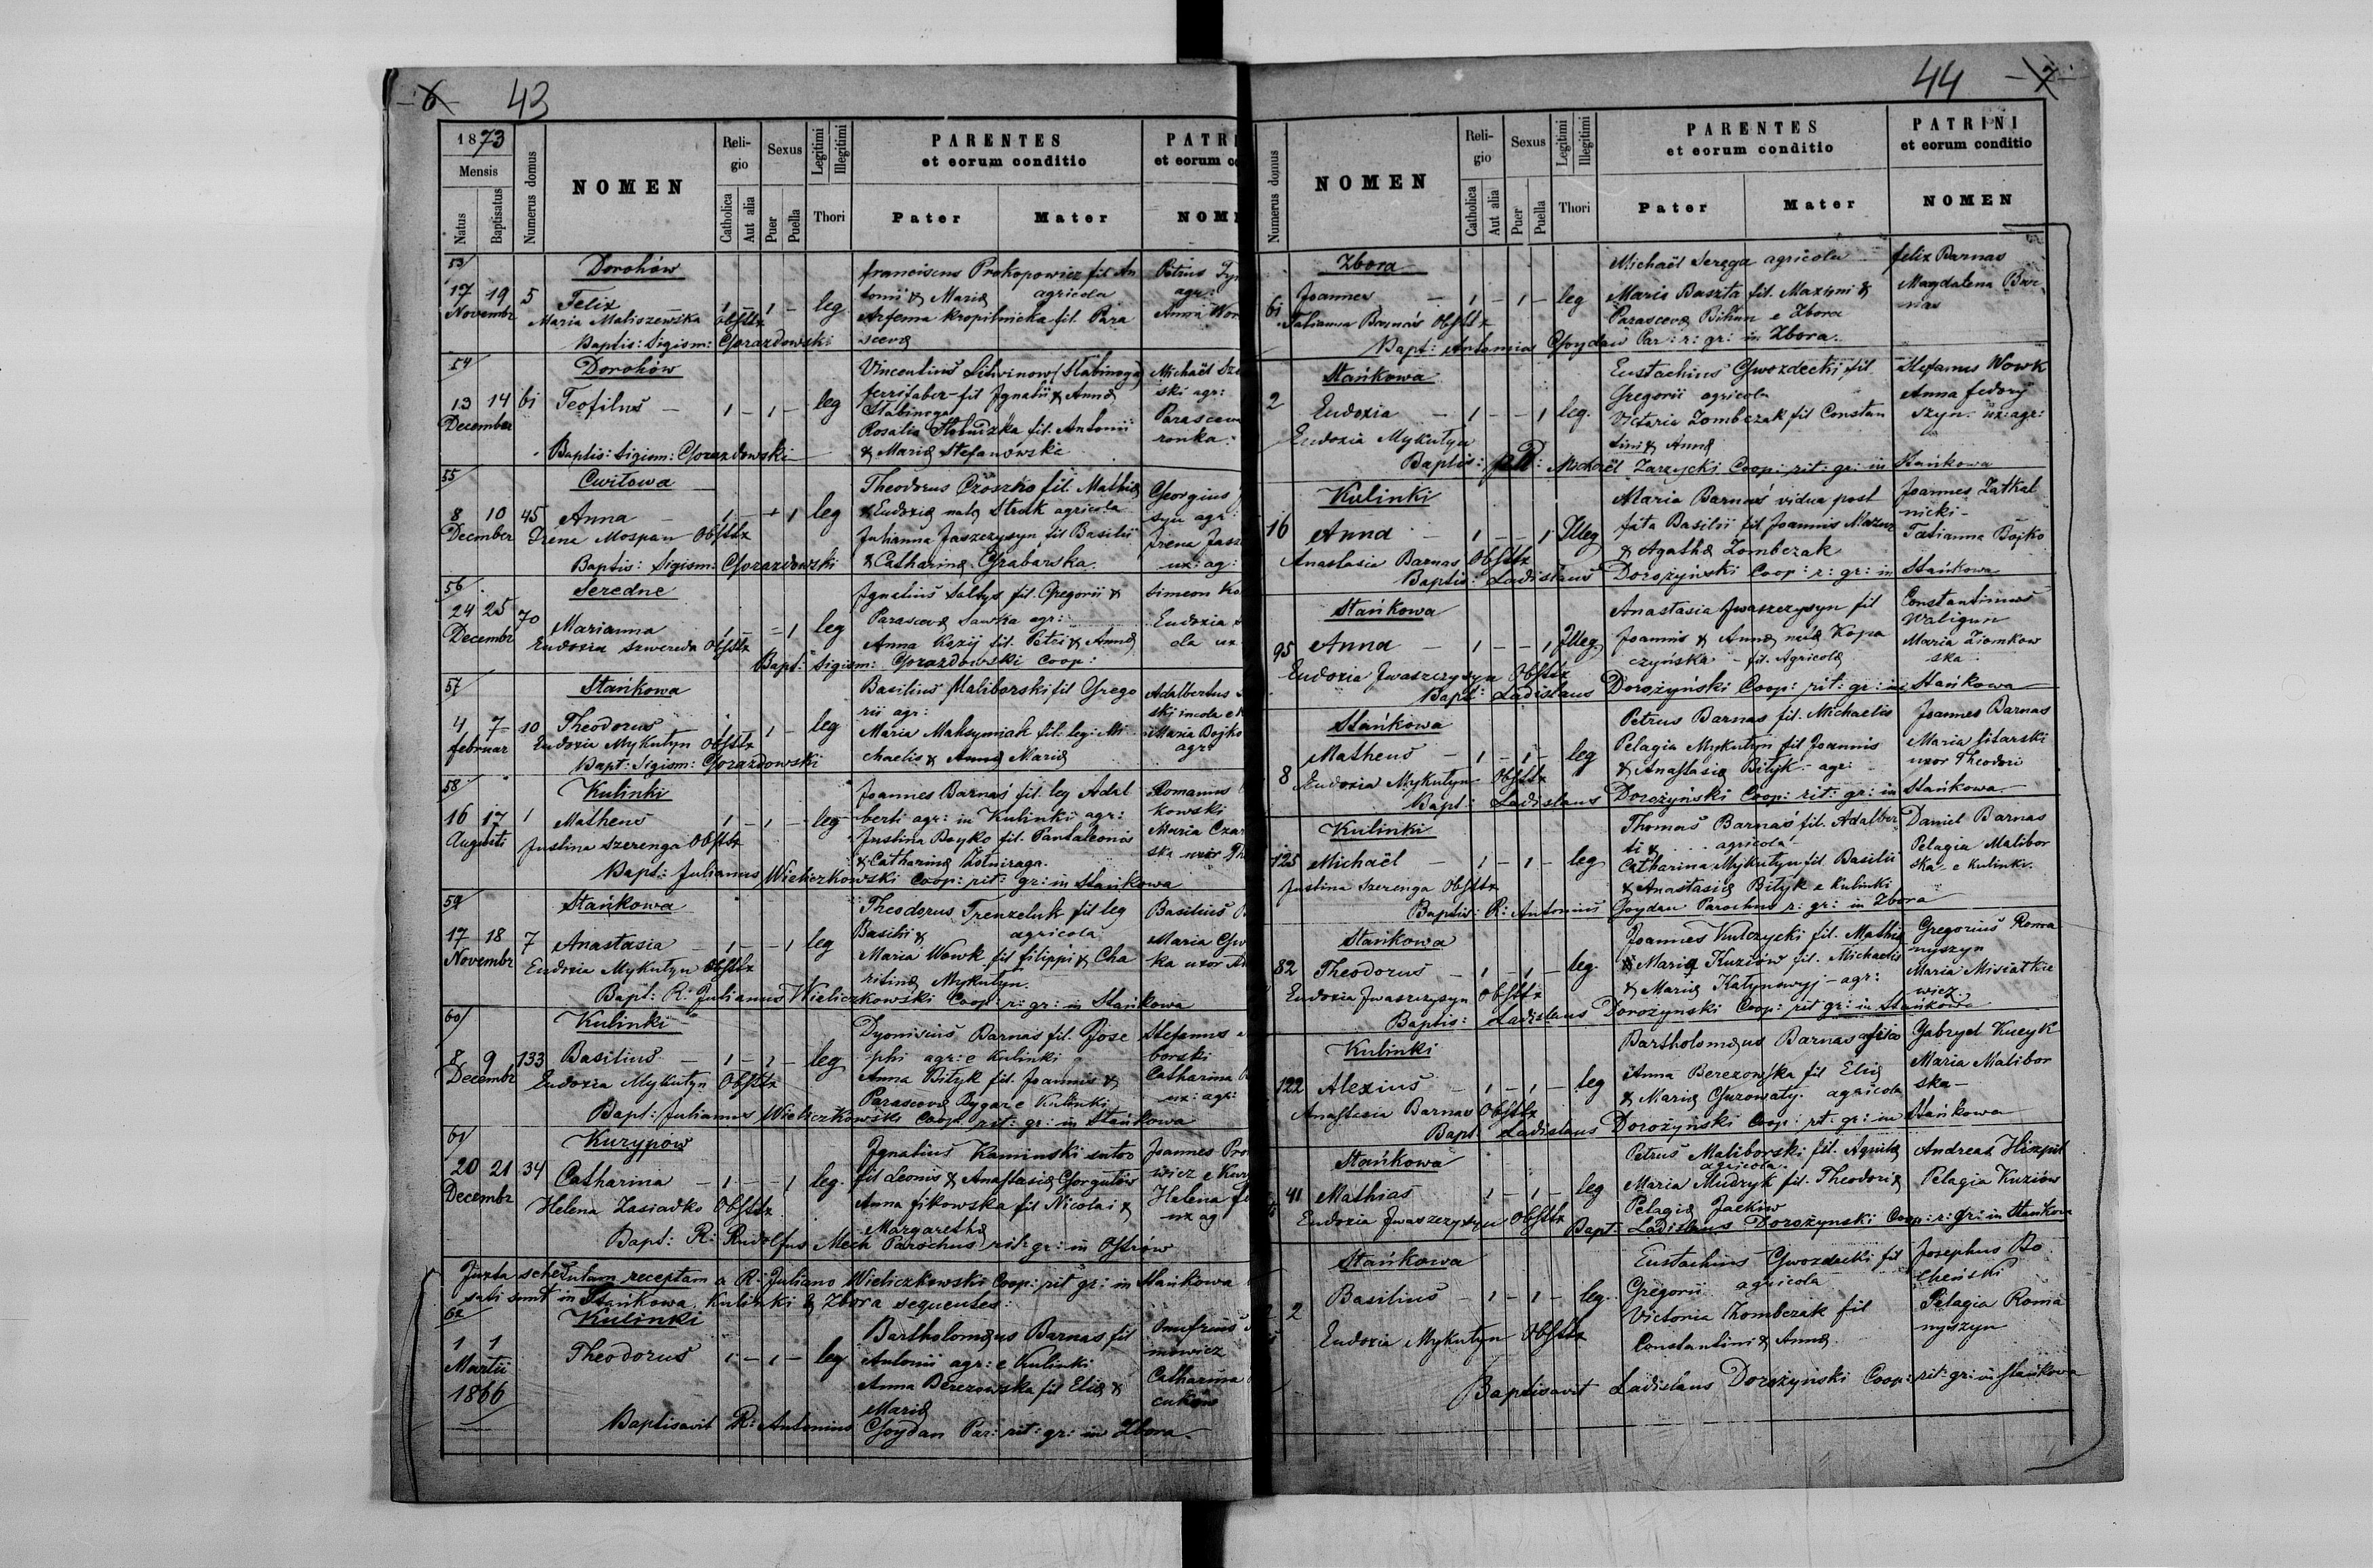 6
43
1873
Mensis
Natus
Baptisatus
Numerus domus
NOMEN
Reli-
gio
Catholica
Aut alia
Sexus
Puer
Puella
Legitimi
Illegitimi
Thori
PARENTES
et eorum conditio
Pater
Mater
PATRI
et eorum co
NOM
53/
Dorohów
17 19 5 Felix 1 – 1 – leg
Novembr Maria Maliszewska Obsttx
Baptis: Sigism: Gorazdowski
franciscus Prokopowicz fil An
tonii & Mariæ agricola
Arfema Kropilnicka fil. Para
scevæ
Petrus
agr:
Anna
54/
Dorohów
13 14 61 Teofilus – 1 – 1 – leg
December
Baptis: Sigism: Gorazdowski
Vincentius Litwinow (Stabinoga)
ferrifaber fil Ignatii & Annæ
Stabinoga
Rosalia fil. Antonii
& Mariæ Stefanowski
Michaël
ski agr:
Parascewa
ronka
55
Cwitowa
8 10 45 Anna – 1 – – 1 leg
Decmber Irena Mospan Obsttx
Baptis: Sigism: Gorazdowski
Theodorus fil. Mathiæ
& Eudoxiæ natæ agricola
Julianna Jaszczyszyn fil Basilii
& Catharinæ Grabarska
Georgius
syn agr:
Irena Jasz
ux: ag:
56
Seredne
24 25 70 Marianna 1 – – 1 leg
Decembr Eudoxia Szwereda Obsttx
Bapt: Sigism: Gorazdowski Coop:
Ignatius Saltys fil. Gregorii &
Parascevæ Sawka agr:
Anna Kozij fil. Petri & Annæ
Simeon Ko
Eudoxia
ola ux
57
Stańkowa
4 7 10 Theodorus 1 – 1 – leg
februar Eudoxia Mykutyn Obsttx
Bapt: Sigism: Gorazdowski
Basilius Maliborski fil Grego
rii agr:
Maria Maksymiak fil: leg: Mi
chaelis & Annæ Mariæ
Adalbertus
ski incola e
Maria Bojko
agr
58/
Kulinki
16 17 1 Matheus 1 – 1 – leg
Augusti Justina Szerenga Obsttx
Bapt: Julianus Wieliczkowski Coop: rit: gr: in Stańkowa
Joannes Barnaś fil. leg Adal
berti agr: in Kulinki agr:
Justina Boyko fil. Pantaleonis
& Catharinæ
Romanus
kowski
Maria Czar
ska uxor Th
59
Stańkowa
17 18 7 Anastasia – 1 – – 1 leg
Novembr Eudoxia Mykutyn Obsttx
Bapt: R: Julianus Wieliczkowski Coop: r: gr: in Stańkowa
Theodorus Trenzeluk fil leg
Basilii & agricola
Maria Wowk fil filippi & Cha
ritinæ Mykutyn
Basilius
Maria Gw
ka uxor
60/
Kulinki
8 9 133 Basilius – 1 – 1 – leg
Decembr Eudoxia Mykutyn Obsttx
Bapt: Julianus Wieliczkowski Coop: rit: gr: in Stańkowa
Dyonisius Barnas fil. Jose
phi agr: e Kulinki
Anna Bityk fil. Joannis &
Parascevæ e Kulinki
Stefanus
borski
Catharina
ux: agr:
61/
Kurypow
20 21 34 Catharina – 1 – – 1 leg.
Decembr Helena Zasiadko Obsttx
Bapt: R: Rudolfus Mech Parochus rit: gr: in Ostrów
Ignatius Kaminski sutor
fil Leonis & Anastasiæ Gorgutów
Anna fikowska fil Nicolai &
Margarethæ
Joannes Pro
wicz e Kur
Helena fi
ux ag
Juxta schedulam receptam a R: Juliano Wieliczkowski Coop: rit gr: in Stańkowa
sati sunt in Stańkowa, Kulinki & Zbora sequentes:
62
Kulinki
1 1 Theodorus 1 – 1 – leg
Martii
1866
Baptisavit R: Antonius Goydan Par: rit: gr: in Zbora
Bartholomæus Barnas fil
Antonii agr: e Kulinki
Anna Berezowska fil Eliæ &
Mariæ
Onufrius
mowicz
Catharina
44
7
Numerus domus
NOMEN
Reli-
gio
Catholica
Aut alia
Sexus
Puer
Puella
Legitimi
Illegitimi
Thori
PARENTES
et eorum conditio
Pater
Mater
PATRINI
et eorum conditio
NOMEN
Zbora
61 Joannes – 1 – 1 – leg
Tatianna Obsttx
Bapt: Antonius Goydan Par: r: gr: in Zbora
Michaël Serega agricola
Maria Baszta fil. Maximi &
Parascevæ Bihun e Zbora
felix Barnas
Magdalena Bar
nas
Stańkowa
2 Eudoxia – 1 – – 1 leg.
Eudoxia Mykutyn
Baptis: Michaël Zarzycki Coop: rit: gr: in Stańkowa
Eustachius Gwozdecki fil
Gregorii agricola
Victoria Zombczak fil Constan
tini & Annæ
Stefanus Wowk
Anna fedory
szyn ux: agr:
Kulinki
16 Anna – 1 – – 1 Illeg
Anastasia Barnas Obsttx
Baptis: Ladislaus Dorożyński Coop: r: gr: in Stańkowa
Maria Barnaś vidua post
fata Basilii fil Joannis Mazur
& Agathæ Zombczak
Joannes Zatkal
nicki
Tatianna Bojko
Stańkowa
95 Anna – 1 – – 1 Illeg
Eudoxia Jwaszczyszyn Obsttx
Bapt: Ladislaus Dorożyński Coop: rit: gr: in Stańkowa
Anastasia Jwaszczyszyn fil
Joannis & Annæ natæ Kopa
czyńska – fil. Agricolæ
Constantinus
Waligun
Maria Ziomkow
ska
Stańkowa
8 Matheus – 1 – 1 – leg
Eudoxia Mykutyn Obsttx
Bapt: Ladislaus Dorożyński Coop: rit: gr: in Stańkowa
Petrus Barnas fil. Michaelis
Pelagia Mykutyn fil Joannis
& Anastasiæ Bityk – agr:
Joannes Barnas
Maria Sitarski
uxor Theodori
Kulinki
125 Michaël – 1 – 1 – leg
Justina Szerenga Obsttx
Baptis: R: Antonius Goydan Parochus r: gr: in Zbora
Thomas Barnaś fil. Adalber
ti & agricola
Catharina Mykutyn fil. Basilii
& Anastasiæ Bityk e Kulinki
Daniel Barnas
Pelagia Malibor
ska e Kulinki
Stańkowa
82 Theodorus – 1 – 1 – leg.
Eudoxia Jwaszczyszyn Obsttx
Baptis: Ladislaus Dorożynski Coop: rit gr: in Stańkowa
Joannes Kulczycki fil. Mathiæ
& Maria Kuziów fil. Michaelis
& Mariæ Katynowyj – agr:
Gregorius Roma
nyszyn
Maria Misiatkie
wicz
Kulinki
122 Alexius – 1 – 1 – leg
Anastasia Barnas Obsttx
Bapt: Ladislaus Dorożyński Coop: rit: gr: in Stańkowa
Bartholomæus Barnas
Anna Berezowska fil Eliæ
& Mariæ agricola
Gabryel Kucyk
Maria Malibor
ska –
Stańkowa
41 Mathias 1 – 1 – leg
Eudoxia Jwaszczyszyn Obsttx Bapt. Ladislaus Dorożynski Coop: r: gr: in Stańkowa
Petrus Maliborski fil.
agricola
Maria Mudryk fil. Theodori &
Pelagiæ Jackiw
Andreas
Pelagia Kuziów
Stańkowa
2 Basilius – 1 – 1 – leg.
Eudoxia Mykutyn Obsttx
Baptisavit Ladislaus Dorożyński Coop: rit: gr: in Stańkowa
Eustachius Gwozdecki fil
Gregorii agricola
Victoria Zombczak fil
Constantini & Annæ
Josephus Bo
cheński
Pelagia Roma
nyszyn